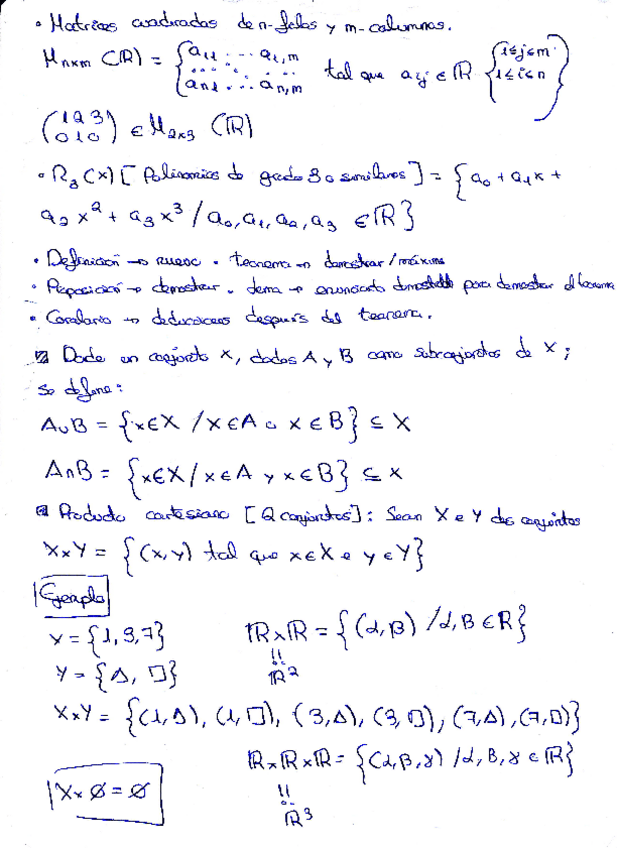 • Matrices cuadradas de n-filas y m-columnas.
M_{n×m} (ℝ) = { a_{11} ... a_{1,m} / ........ / a_{n1} ... a_{n,m} tal que a_{ij} ∈ ℝ { 1≤j≤m / 1≤i≤n }
(1 2 3 / 0 1 0) ∈ M_{2×3} (ℝ)
• ℝ_3(x) [Polinomios de grado 3 o similares] = { a_0 + a_1x +
a_2x^2 + a_3x^3 / a_0, a_1, a_2, a_3 ∈ ℝ }
• Definición → • teorema → demostrar/máxima
• Proposición → demostrar. lema → enunciado para demostrar el teorema
• Corolario → deducciones después del teorema.
Dado un conjunto X, dados A y B como subconjuntos de X;
se define:
A∪B = {x∈X / x∈A o x∈B} ⊆ X
A∩B = {x∈X / x∈A y x∈B} ⊆ X
Producto cartesiano [2 conjuntos]: Sean X e Y dos conjuntos
X×Y = {(x,y) tal que x∈X e y∈Y}
Ejemplo
X = {1,3,7}
ℝ×ℝ = {(α,β) / α,β ∈ ℝ}
Y = {Δ, □}
ℝ^2
X×Y = {(1,Δ), (1,□), (3,Δ), (3,□), (7,Δ), (7,□)}
ℝ×ℝ×ℝ = {(α,β,γ) / α,β,γ ∈ ℝ}
X×∅ = ∅
ℝ^3